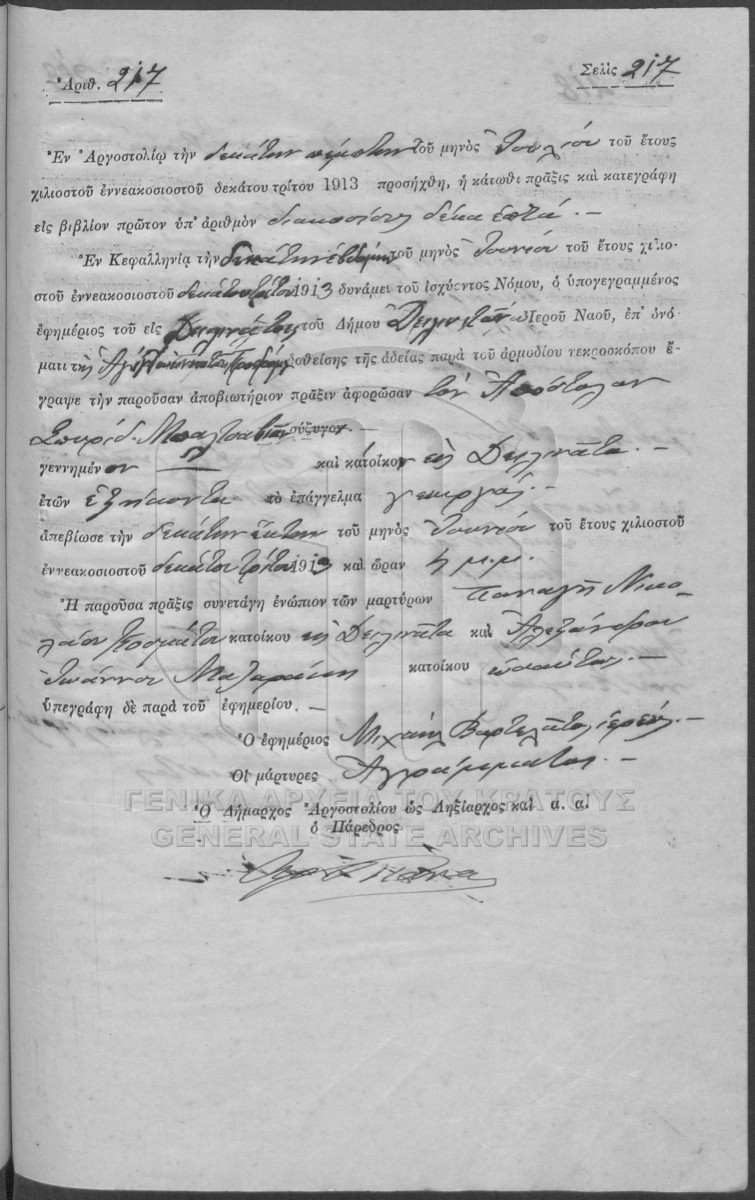 Ἀριθ. 217
Σελὶς 217
Ἐν Ἀργοστολίῳ τὴν δεκάτην πέμπτην τοῦ μηνὸς Ἰουλίου τοῦ ἔτους
χιλιοστοῦ ἐννεακοσιοστοῦ δεκάτου τρίτου 1913 προσήχθη, ἡ κάτωθι πρᾶξις καὶ κατεγράφη
εἰς βιβλίον πρῶτον ὑπ' ἀριθμὸν διακόσια δέκα ἑπτά. —
Ἐν Κεφαλληνίᾳ τὴν δεκάτην ἑβδόμην τοῦ μηνὸς Ἰουνίου τοῦ ἔτους χιλιο-
στοῦ ἐννεακοσιοστοῦ δεκάτου τρίτου 1913 δυνάμει τοῦ ἰσχύοντος Νόμου, ὁ ὑπογεγραμμένος
ἐφημέριος τοῦ εἰς Δειλινάτα τοῦ Δήμου Δειλινάτων Ἱεροῦ Ναοῦ, ἐπ' ὀνό-
ματι Ἁγ. Ἰωάννου τοῦ Προδρόμου δοθείσης τῆς ἀδείας παρὰ τοῦ ἁρμοδίου νεκροσκόπου ἔ-
γραψε τὴν παροῦσαν ἀποβιωτήριον πρᾶξιν ἀφορῶσαν τὸν Ἀπόστολον
Σπυρίδ. Μπαλτσα σύζυγον. —
γεννημένον — καὶ κάτοικον εἰς Δειλινάτα. —
ἐτῶν ἑξήκοντα τὸ ἐπάγγελμα γεωργός. —
ἀπεβίωσε τὴν δεκάτην ἕκτην τοῦ μηνὸς Ἰουνίου τοῦ ἔτους χιλιοστοῦ
ἐννεακοσιοστοῦ δεκάτου τρίτου 1913 καὶ ὥραν 4 μ.μ.
Ἡ παροῦσα πρᾶξις συνετάγη ἐνώπιον τῶν μαρτύρων Παναγῆ Νικο-
λάου Κοσμάτου κατοίκου εἰς Δειλινάτα καὶ Ἀλεξάνδρου
Ἰωάννου Μαζαράκη κατοίκου ὡσαύτως. —
ὑπεγράφη δὲ παρὰ τοῦ ἐφημερίου. —
Ὁ ἐφημέριος Μιχαὴλ Βαρτελάτος ἱερεύς. —
Οἱ μάρτυρες Ἀγράμματοι. —
ΓΕΝΙΚΑ ΑΡΧΕΙΑ ΤΟΥ ΚΡΑΤΟΥΣ
Ὁ Δήμαρχος Ἀργοστολίου ὡς Ληξίαρχος καὶ α. α.
GENERAL STATE ARCHIVES
ὁ Πάρεδρος